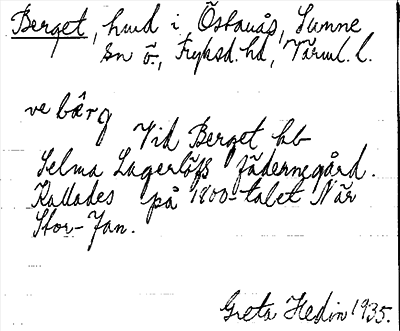 Berget, hmd i Östanås, Sunne
sn ö., Fryksd. hd, Värml. l.
ve bärg
Vid Berget hb
Selma Lagerlöfs fädernegård.
Kallades på 1800-talet När
Stor-Jan.
Greta Hedin 1935.